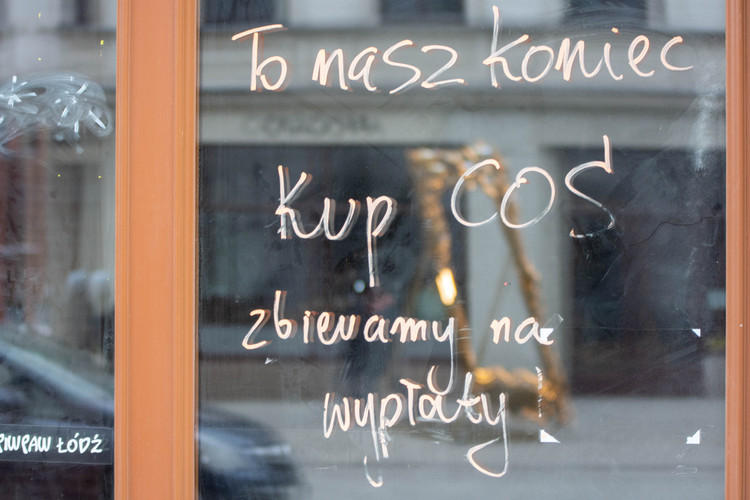 To nasz koniec
Kup COŚ
zbieramy na
wypłaty
PIWPAW ŁÓDŹ